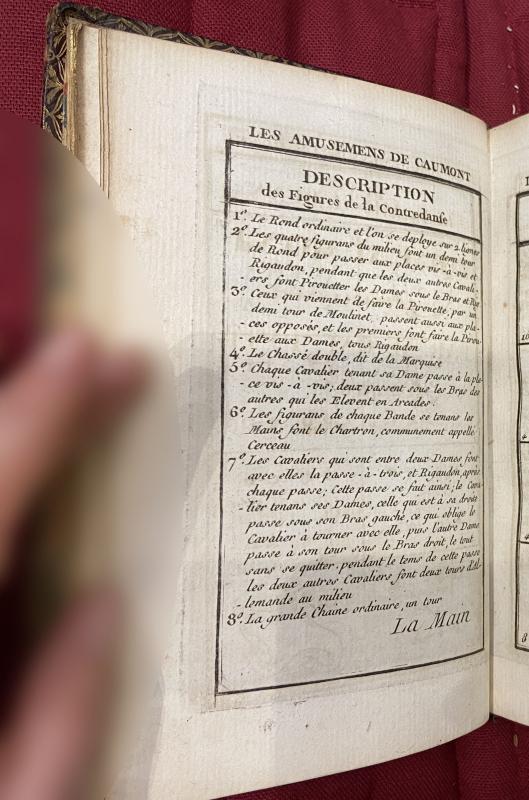 LES AMUSEMENS DE CAUMONT
DESCRIPTION
des Figures de la Contredanse
1º. Le Rond ordinaire et l'on se deploye sur 2. lignes
2º. Les quatre figurans du milieu font un demi tour
de Rond pour passer aux places vis-à-vis et
Rigaudon, pendant que les deux autres Cavali-
-ers font Pirouetter les Dames sous le Bras et Rig
3º. Ceux qui viennent de faire la Pirouette, par un
demi tour de Moulinet, passent aussi aux pla-
-ces opposés, et les premiers font faire la Pirou-
-ette aux Dames, tous Rigaudon
4º. Le Chassé double, dit de la Marquise
5º. Chaque Cavalier tenant sa Dame passe à la pla-
-ce vis-à-vis; deux passent sous les Bras des
autres qui les Elevent en Arcades.
6º. Les figurans de chaque Bande se tenans les
Mains font le Chartron, communement appellé
Cerceau
7º. Les Cavaliers qui sont entre deux Dames font
avec elles la passe-à-trois, et Rigaudon, après
chaque passe; Cette passe se fait ainsi; le Cava-
-lier tenans ses Dames, celle qui est à sa droite
passe sous son Bras gauche, ce qui oblige le
Cavalier à tourner avec elle, puis l'autre Dame
passe à son tour sous le Bras droit, le tout
sans se quitter. pendant le tems de cette passe
les deux autres Cavaliers font deux tours d'Al-
-lemande au milieu
8º. La grande Chaine ordinaire, un tour
La Main